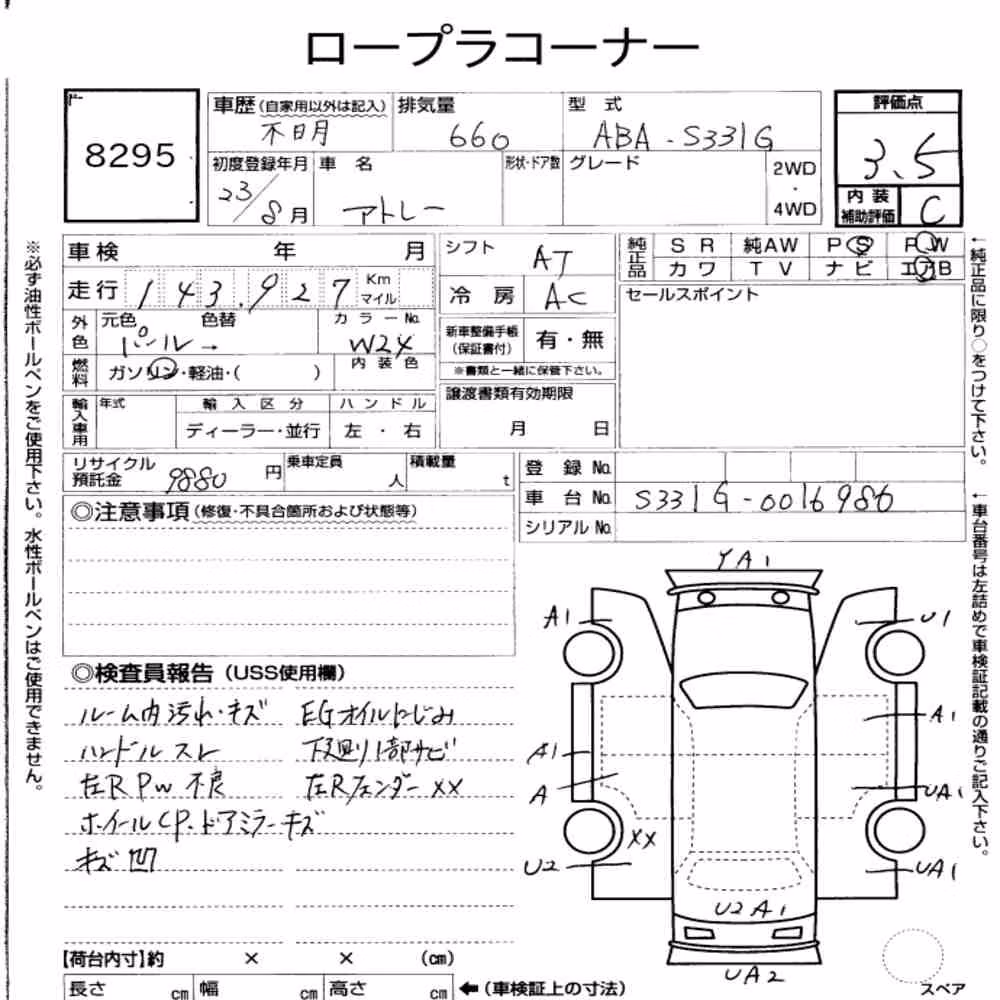 ロープラコーナー
8295
車歴(自家用以外は記入) 排気量 型 式 評価点
不日月 660 ABA-S331G 3.5
初度登録年月 車 名 形状・ドア数 グレード 2WD・4WD
23/8月 アトレー
内装補助評価 C
車検 年 月
シフト AT
純正品 SR 純AW PS PW
カワ TV ナビ エアB
走行 143,927 Km マイル
冷房 AC
セールスポイント
外色 元色 色替 カラーNo.
パール→ W24
新車整備手帳(保証書付) 有・無
※書類と一緒に保管下さい。
燃料 ガソリン・軽油・( ) 内装色
譲渡書類有効期限
月 日
輸入車用 年式 輸入区分 ハンドル
ディーラー・並行 左・右
リサイクル預託金 9880円 乗車定員 人 積載量 t
登録No.
車台No. S331G-0016986
シリアルNo.
◎注意事項(修復・不具合箇所および状態等)
◎検査員報告(USS使用欄)
ルーム内汚れ・キズ EGオイルにじみ
ハンドルスレ 下廻り1部サビ
左R PW 不良 左Rフェンダーxx
ホイールCP.ドアミラーキズ
キズ凹
【荷台内寸】約 × × (cm)
長さ cm 幅 cm 高さ cm ←(車検証上の寸法)
YA1
A1 U1
A1
A1
A UA1
xx
U2 UA1
U2 A1
UA2
スペア
※必ず油性ボールペンをご使用下さい。水性ボールペンはご使用できません。
←純正品に限り○をつけて下さい。
←車台番号は左詰めで車検証記載の通りご記入下さい。